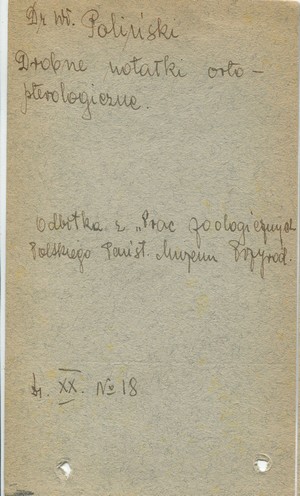 Dr Wł. Poliński
Drobne notatki orto-
pterologiczne.
Odbitka z „Prac zoologicznych
Polskiego Państ. Muzeum Przyrod.
t. XX. № 18